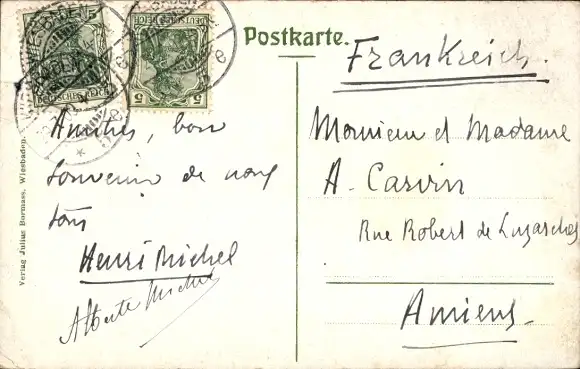 Postkarte.
Frankreich.
Monsieur et Madame
A. Carvin
Rue Robert de Luzarches
Amiens
Amitiés, bon
souvenir de nous
tous
Henri Michel
Alberte Michel
Verlag Julius Bormass, Wiesbaden.
DEUTSCHES REICH
5
DEUTSCHES REICH
5
5
WIESBADEN
e